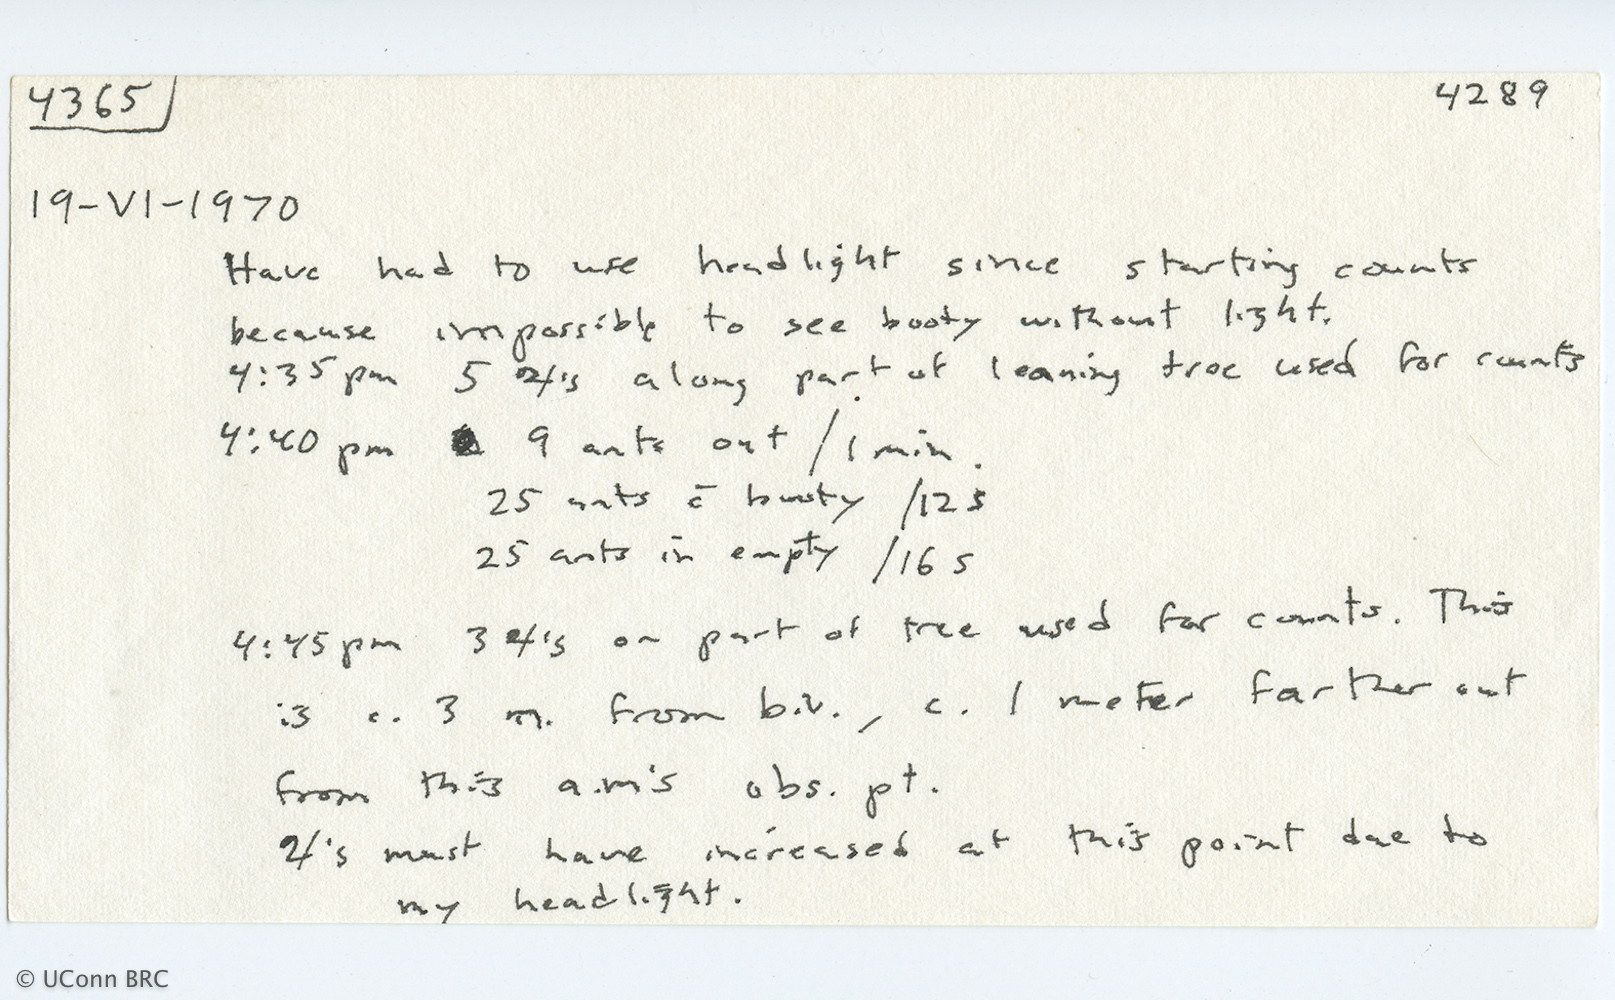 4365
4289
19-VI-1970
Have had to use headlight since starting counts
because impossible to see booty without light.
4:35 pm 5 ♃'s along part of leaning tree used for counts
4:40 pm 9 ants out /1 min.
25 ants c̄ booty /12 s
25 ants in empty /16 s
4:45 pm 3 ♃'s on part of tree used for counts. This
is c. 3 m. from biv., c. 1 meter farther out
from this a.m's obs. pt.
♃'s must have increased at this point due to
my headlight.
© UConn BRC